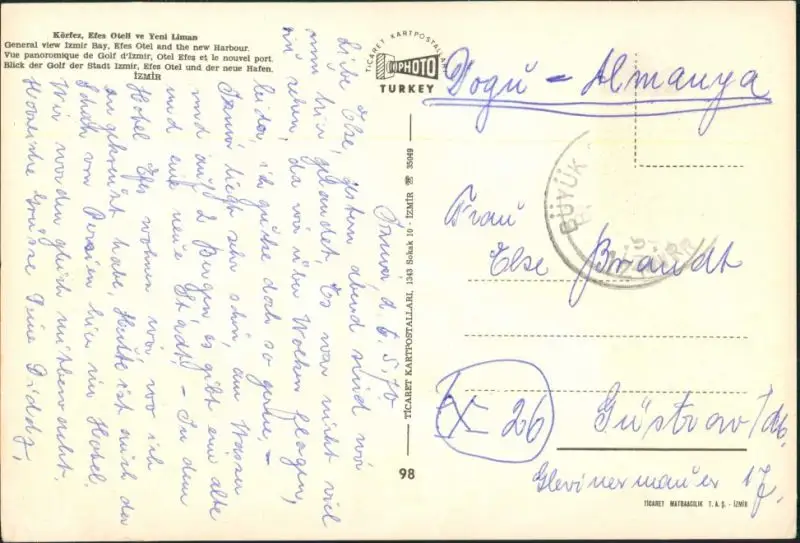 Körfez, Efes Oteli ve Yeni Liman
General view Izmir Bay, Efes Otel and the new Harbour.
Vue panoromique de Golf d'Izmir, Otel Efes et le nouvel port.
Blick der Golf der Stadt Izmir, Efes Otel und der neue Hafen.
İZMİR
TİCARET KARTPOSTALLARI
PHOTO
TURKEY
Izmir d. 6.5.70
Liebe Else, gestern abend sind wir
nun hier gelandet, Es war nicht viel
zu sehen, da wir über Wolken flogen,
leider, ich gucke doch so gerne. –
Izmir liegt sehr schön, am Wasser
und auf 2 Bergen, es gibt eine alte
und eine neue Stadt! – In dem
Hotel Efes wohnen wir, wo ich
angekreuzt habe, Heute ist auch der
Schah von Persien hier im Hotel.
Wir wurden gleich mitbewacht.
Herzliche Grüsse Deine
TİCARET KARTPOSTALLARI, 1343 Sokak 10 - İZMİR ☎ 35049
98
Doğu - Almanya
BÜYÜK
Frau
Else Brandt
X-26
Güstrow/Mb.
Glevinermauer 17.
TİCARET MATBAACILIK T.A.Ş. - İZMİR